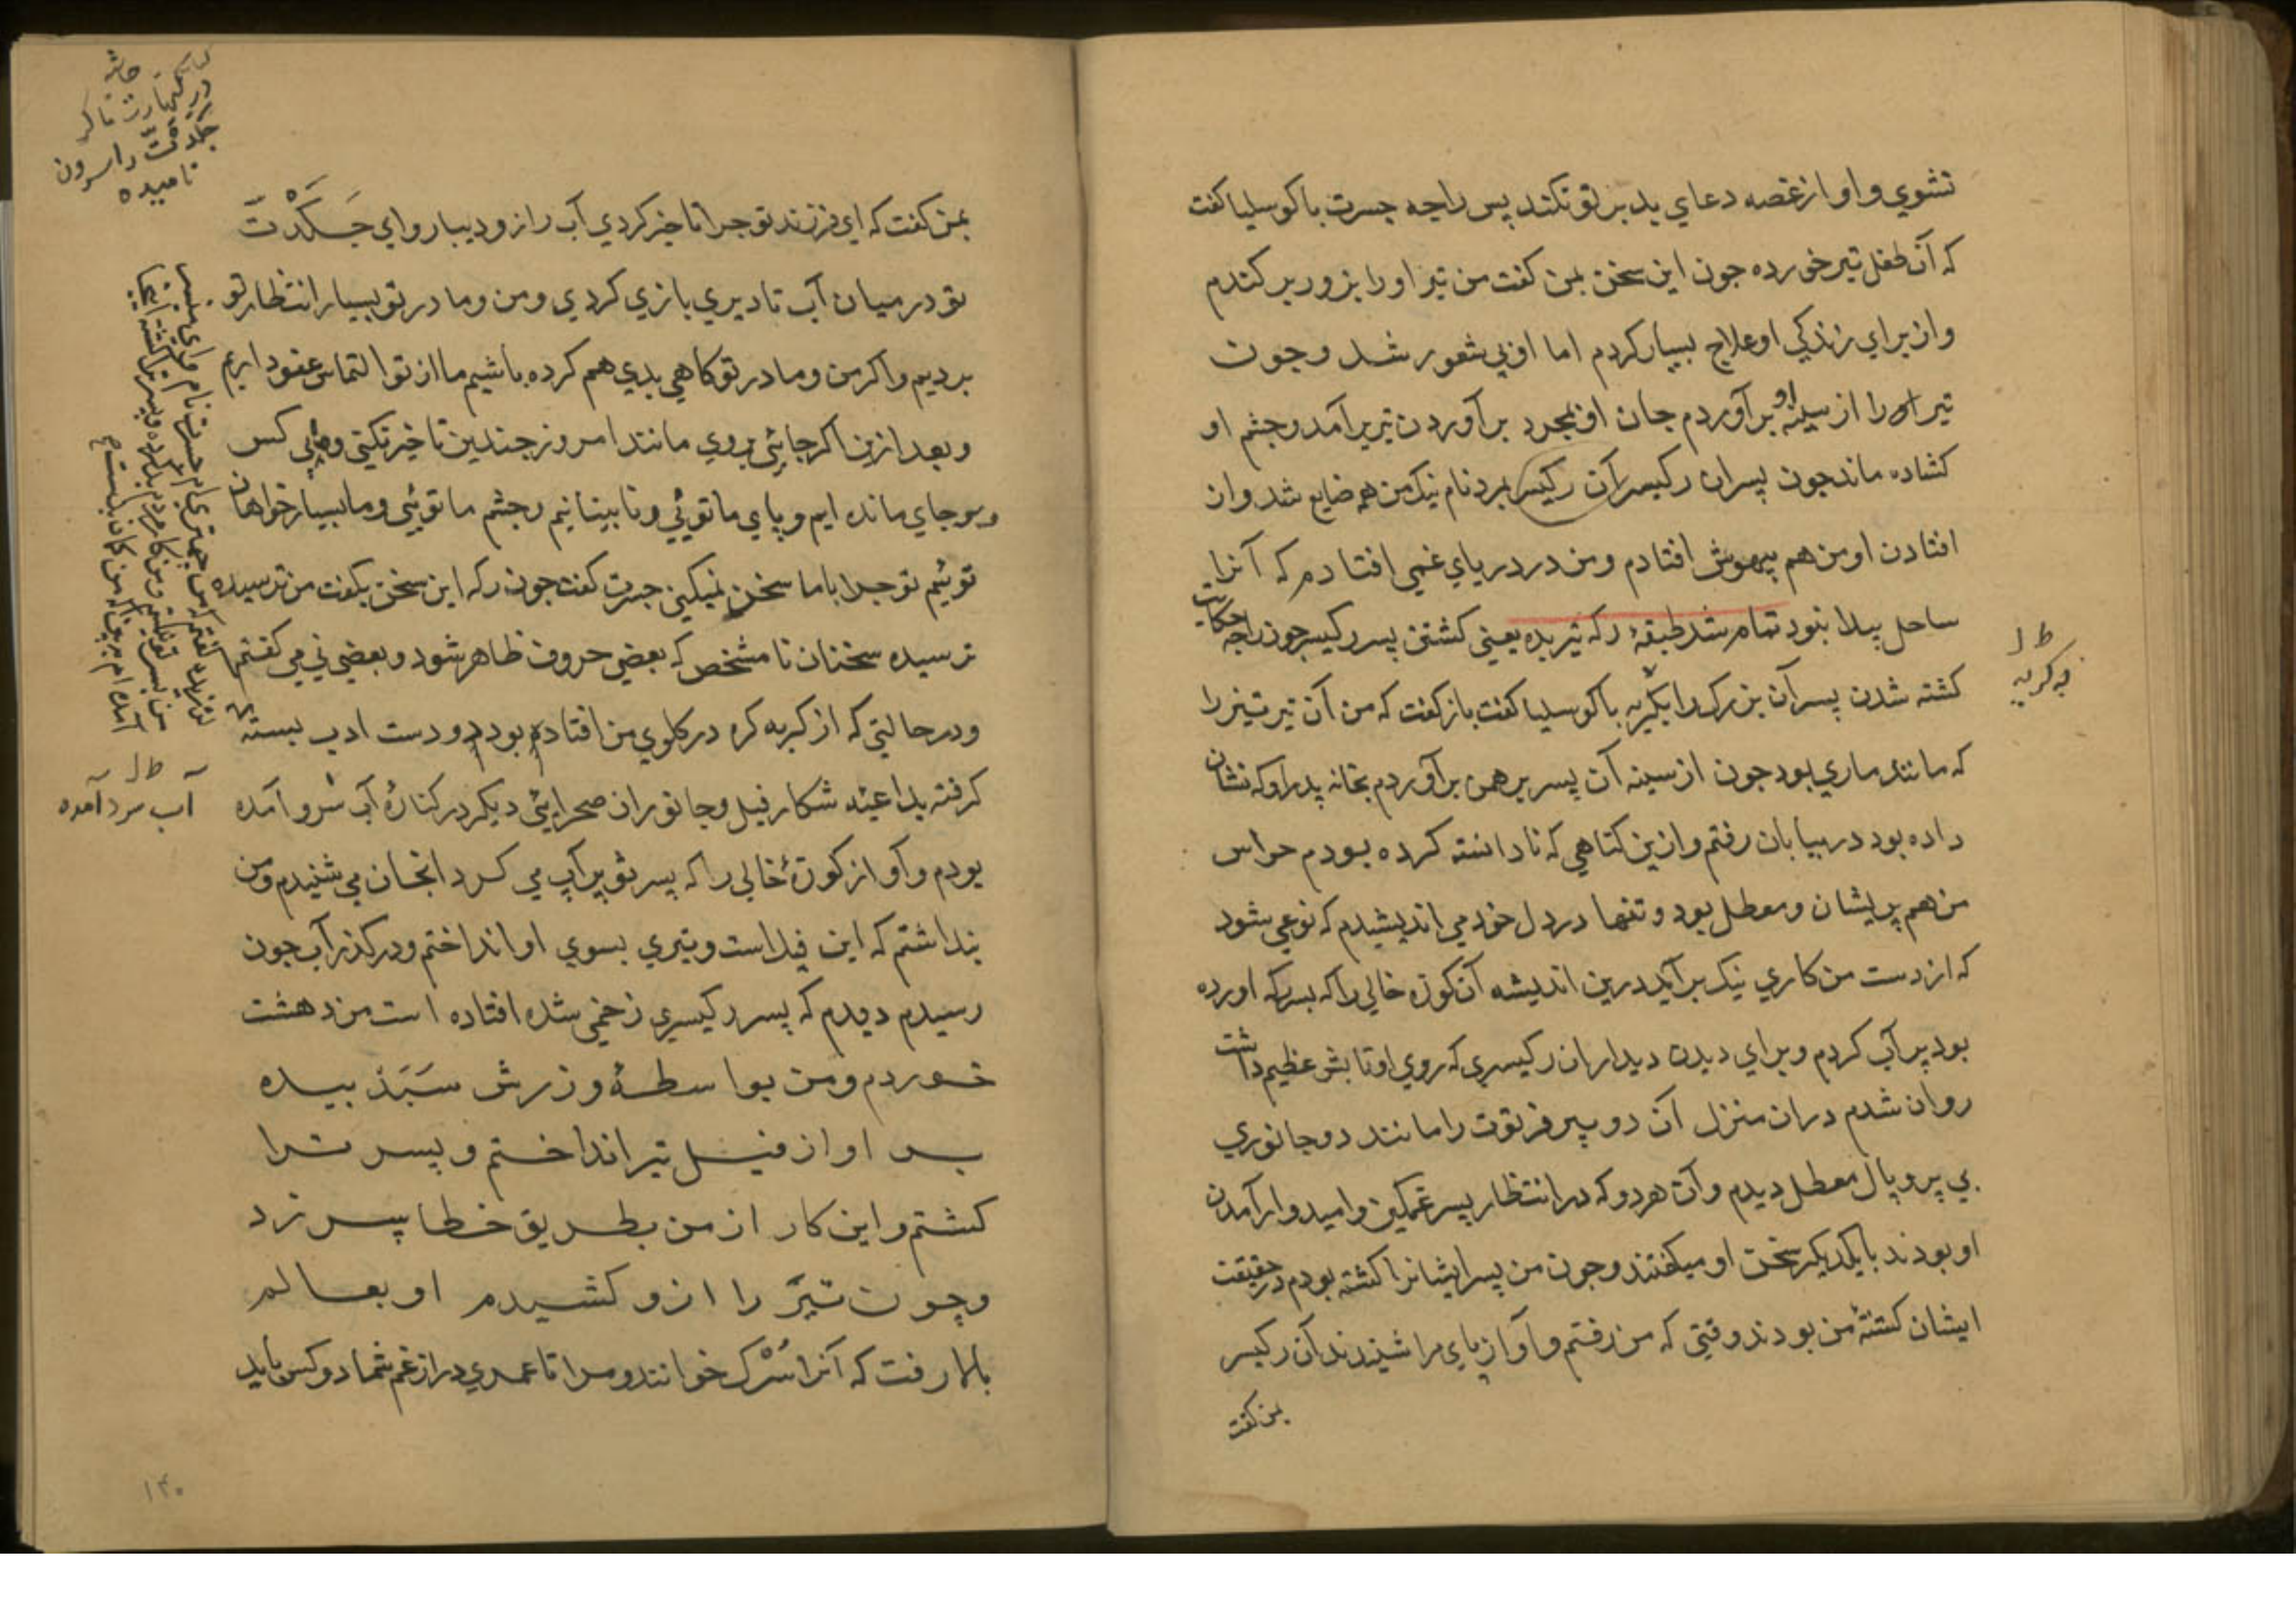 نشوي و او از غصه دعاي بد بر تو نكند پس راجه جسرت با كوسليا كفت
كه آن طفل تير خورده جون اين سخن بمن كفت من تير او را بزور بر كندم
و از براي زندكي او علاج بسيار كردم اما او بي شعور شد و جون
تير او را از سينه او بر آوردم جان او بمجرد بر آوردن تير بر آمد و جشم او
كشاده ماند جون پسران ركيسر آن ركيسر بمرد نام نيك من هم ضايع شد و از
افتادن او من هم بيهوش افتادم و من در درياي غمي افتادم كه آنرا
ساحل پيدا نبود تمام شد طبقهٔ ركه تير بده يعني كشتن پسر ركيسر جون راجه حكايت
كشته شدن پسر آن بزرك را بگريه با كوسليا كفت باز كفت كه من آن تير تيز را
كه مانند ماري بود جون از سينه آن پسر برهمن بر آوردم بخانه پدر او كه نشان
داده بود در بيابان رفتم و ازين كناهي كه نادانسته كرده بودم حواس
من هم پريشان و معطل بود و تنها در دل خود مي انديشيدم كه نوعي شود
كه از دست من كاري نيك بر آيد درين انديشه آن كوزه خالي را كه پسر ركه آورده
بود پر آب كردم و براي ديدن ديدار ان ركيسري كه روي او تابش عظيم داشت
روان شدم در ان منزل آن دو پير فرتوت را مانند دو جانوري
بي پر و پال معطل ديدم و آن هر دو كه در انتظار پسر غمكين و اميدوار آمدن
او بودند با يكديكر سخن او ميكفتند و جون من پسر ايشانرا كشته بودم در حقيقت
ايشان كشتهٔ من بودند وقتي كه من رفتم و آواز پاي مرا شنيدند آن ركيسر
بمن كفت
ط ل
به كريه
بمن كفت كه اي فرزند تو جرا تاخير كردي آب را زود بيار و اي جَكَدْتَ
تو در ميان آب تا ديري بازي كردي و من و مادر تو بسيار انتظار تو
برديم و اكر من و مادر تو كاهي بدي هم كرده باشيم ما از تو التماس عفو داريم
و بعد ازين اكر جائي بروي مانند امروز جندين تاخير نكني و ما بي كس
و بيجاي مانده ايم و پاي ما توئي و نابينائيم و جشم ما توئي و ما بسيار خواهان
توئيم تو جرا با ما سخن نميكني جسرت كفت جون ركه اين سخن بكفت من ترسيده
ترسيده سخنان نا مشخص كه بعضي حروف ظاهر شود و بعضي ني مي كفتم
و در حالتي كه از كريه كره در كلوي من افتاده بود و دست ادب بسته
كرفته بداعيهٔ شكار فيل و جانوران صحرايي ديكر در كنارهٔ آب سرو آمده
بودم و آواز كوزهٔ خالي را كه پسر تو پر آب مي كرد انجان مي شنيدم و من
پنداشتم كه اين فيل است و تيري بسوي او انداختم و در كذر آب جون
رسيدم ديدم كه پسر ركيسري زخمي شده افتاده است من دهشت
خوردم و من بواسطهٔ ورزش سَبَدْ بيده
بر آواز فيل تير انداختم و پسر ترا
كشتم و اين كار از من بطريق خطا سر زد
و چون تير را ازو كشيدم او بعالم
بالا رفت كه آنرا سُرْك خوانند و مرا تا عمري دراز غم شما دو كس بايد
ط ل
آب سرد آمده
۱۴۰